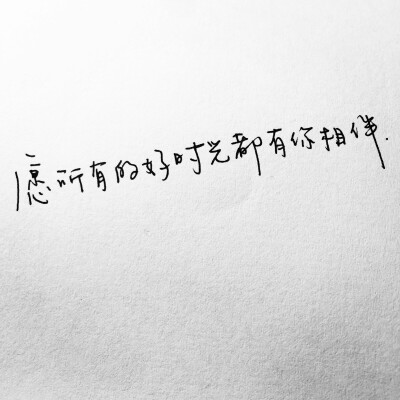 愿所有的好时光都有你相伴.